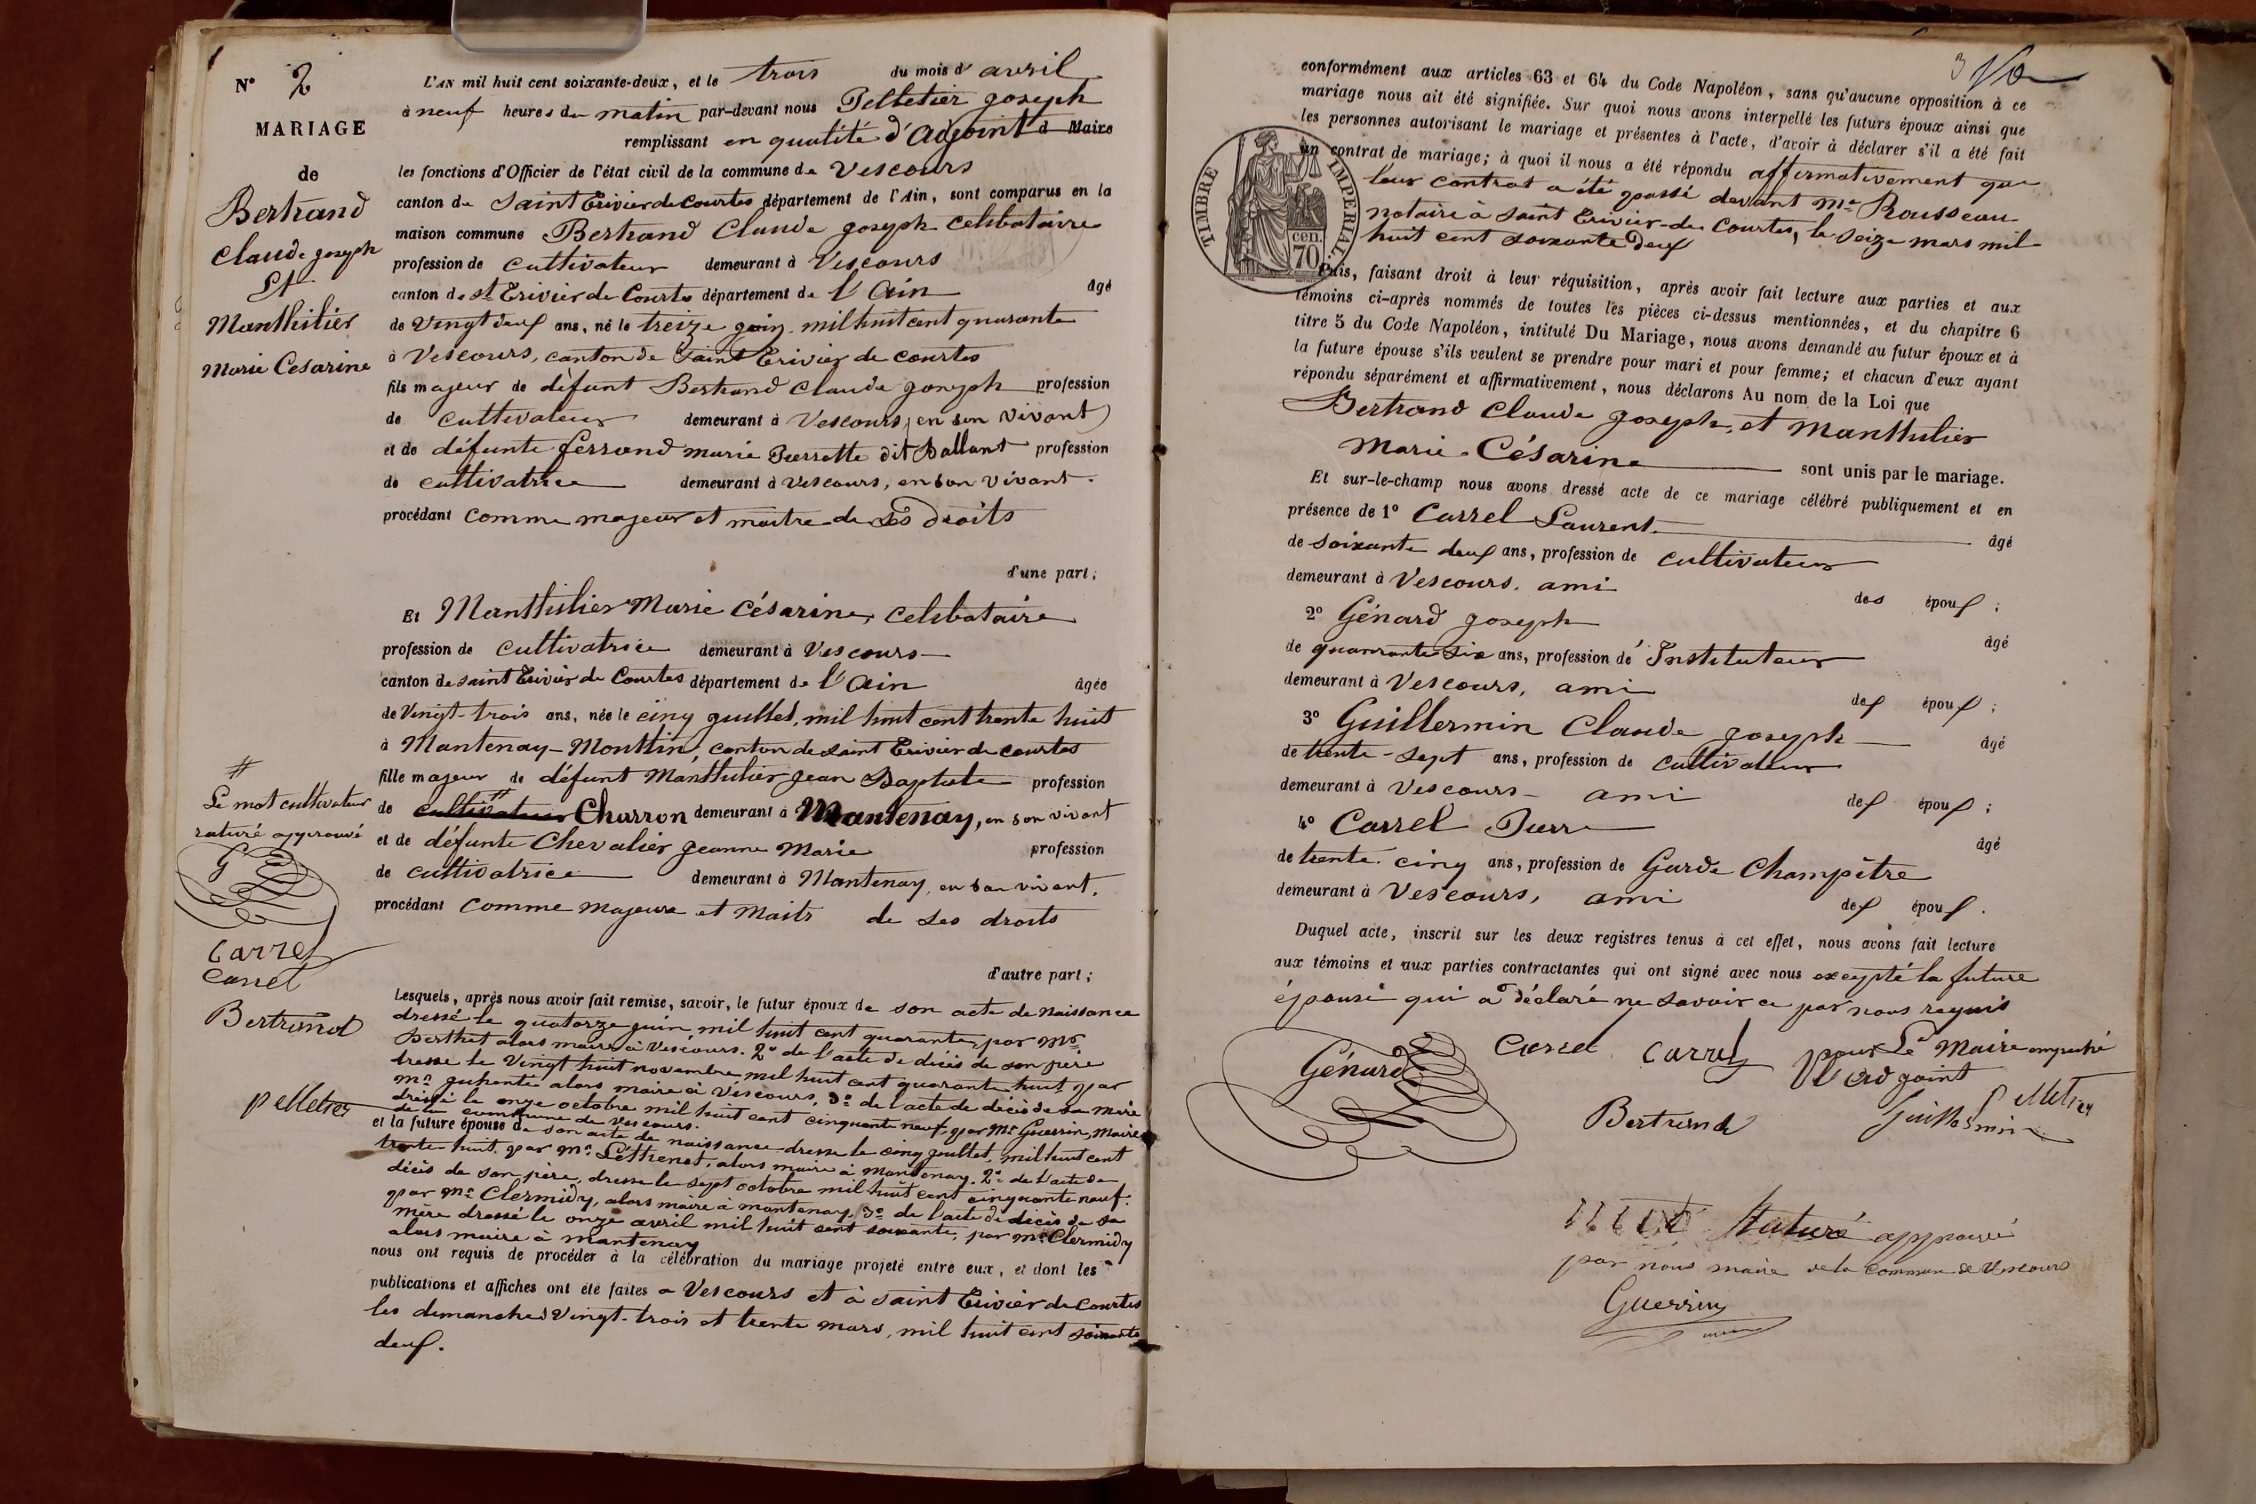 N° 2
MARIAGE
de
Bertrand
Claude joseph
Et
Manthilier
Marie Césarine
L'AN mil huit cent soixante-deux, et le trois du mois d'avril
à neuf heures du matin par-devant nous Pelletier joseph
remplissant en qualité d'adjoint d Maire
les fonctions d'Officier de l'état civil de la commune de Vescours
canton de Saint Trivier de Courtes département de l'Ain, sont comparus en la
maison commune Bertrand Claude joseph celibataire
profession de cultivateur demeurant à Vescours
canton de st Trivier de Courtes département de l'Ain âgé
de Vingt deux ans, né le treize juin mil huit cent quarante
à Vescours, canton de Saint Trivier de courtes
fils majeur de défunt Bertrand Claude joseph profession
de cultivateur demeurant à Vescours (en son vivant)
et de défunte ferrand marie Pierrette dit Ballant profession
de cultivatrice demeurant à Vescours, en son vivant.
procédant comme majeur et maitre de ses droits
d'une part;
Et Manthilier Marie Césarine, celibataire
profession de cultivatrice demeurant à Vescours
canton de saint Trivier de Courtes département de l'Ain âgée
de Vingt-trois ans, née le cinq juillet, mil huit cent trente huit
à Mantenay-Montlin, canton de saint Trivier de courtes
fille majeur de défunt Manthilier jean Baptiste profession
de cultivateur Charron demeurant à Mantenay, en son vivant
et de défunte Chevalier jeanne Marie profession
de cultivatrice demeurant à Mantenay, en son vivant.
procédant comme majeure et maitr de ses droits
d'autre part;
#
Le mot cultivateur
raturé approuvé
G
Carrel
Carrel
Bertrand
pelletier
Lesquels, après nous avoir fait remise, savoir, le futur époux de son acte de naissance
dressé le quatorze juin mil huit cent quarante, par Mr
Berthet alors maire à Vescours. 2° de l'acte de décès de son père
dresse le Vingt huit novembre mil huit cent quarante huit par
Mr alors maire à Vescours, 3° de l'acte de décès de sa mère
dressé le onze octobre mil huit cent cinquante neuf, par Mr Guerrin, Maire
de la commune de Vescours.
et la future épouse de son acte de naissance dresse le cinq juillet, mil huit cent
trente huit par Mr alors maire à Mantenay. 2° de l'acte de
décès de son père, dresse le sept octobre mil huit cent cinquante neuf.
par Mr Clermidy, alors maire à mantenay, 3° de l'acte de décès de sa
mère dressé le onze avril mil huit cent soixante, par Mr Clermidy
alors maire à mantenay
nous ont requis de procéder à la célébration du mariage projeté entre eux, et dont les
publications et affiches ont été faites a Vescours et à Saint Trivier de Courtes
les dimanches Vingt-trois et trente mars, mil huit cent soixante
deux.
3
conformément aux articles 63 et 64 du Code Napoléon, sans qu'aucune opposition à ce
mariage nous ait été signifiée. Sur quoi nous avons interpellé les futurs époux ainsi que
les personnes autorisant le mariage et présentes à l'acte, d'avoir à déclarer s'il a été fait
un contrat de mariage; à quoi il nous a été répondu affirmativement que
leur contrat a été passé devant Me Rousseau
notaire à Saint Trivier-de Courtes, le seize mars mil
huit cent soixante deux
TIMBRE IMPERIAL.
cen.
70
Puis, faisant droit à leur réquisition, après avoir fait lecture aux parties et aux
témoins ci-après nommés de toutes les pièces ci-dessus mentionnées, et du chapitre 6
titre 5 du Code Napoléon, intitulé Du Mariage, nous avons demandé au futur époux et à
la future épouse s'ils veulent se prendre pour mari et pour femme; et chacun d'eux ayant
répondu séparément et affirmativement, nous déclarons Au nom de la Loi que
Bertrand Claude joseph, et Manthilier
Marie-Césarine sont unis par le mariage.
Et sur-le-champ nous avons dressé acte de ce mariage célébré publiquement et en
présence de 1° Carrel Laurent âgé
de soixante deux ans, profession de cultivateur
demeurant à Vescours, ami des époux;
2° Génard joseph âgé
de quarante six ans, profession d'Instituteur
demeurant à Vescours, ami des époux;
3° Guillermin Claude joseph âgé
de trente-sept ans, profession de cultivateur
demeurant à Vescours ami des époux;
4° Carrel Pierre âgé
de trente-cinq ans, profession de Garde Champêtre
demeurant à Vescours, ami des époux.
Duquel acte, inscrit sur les deux registres tenus à cet effet, nous avons fait lecture
aux témoins et aux parties contractantes qui ont signé avec nous excepté la future
épouse qui a déclaré ne savoir ce par nous requis
Génard Carrel Carrel pour Le Maire empeché
l'adjoint
Pelletier
Bertrand Guillermin
raturé approuvé
par nous maire de la commune de Vescours
Guerrin